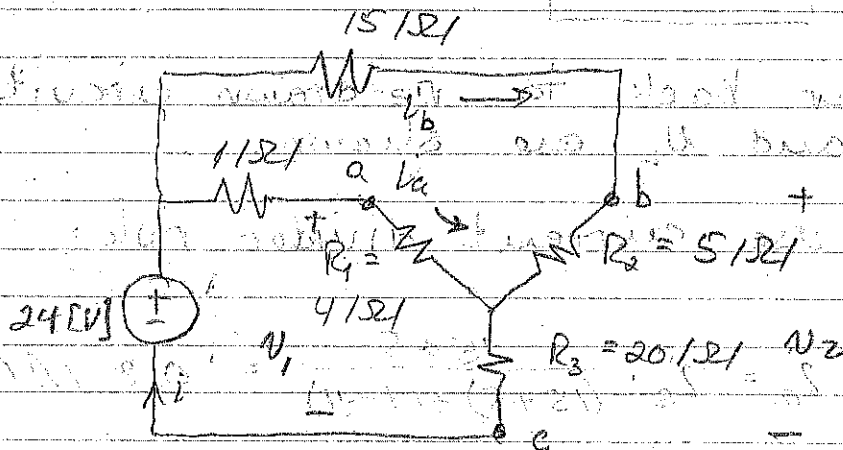 15 [Ω]
i_b
1 [Ω]
a i_a b
+ +
R_1 = R_2 = 5 [Ω]
4 [Ω]
24 [V] + -
v_1 R_3 = 20 [Ω] v_2
i
- c -